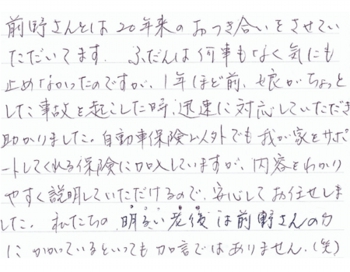 前野さんとは20年来のおつき合いをさせてい
ただいてます。ふだんは何事もなく気にも
止めなかったのですが、1年ほど前、娘がちょっと
した事故を起こした時、迅速に対応していただき
助かりました。自動車保険以外でも我が家をサポ
ートしてくれる保険に加入していますが、内容をわかり
やすく説明していただけるので、安心してお任せしま
した。私たちの明るい老後は前野さんの力
にかかっているといっても加言ではありません。(笑)